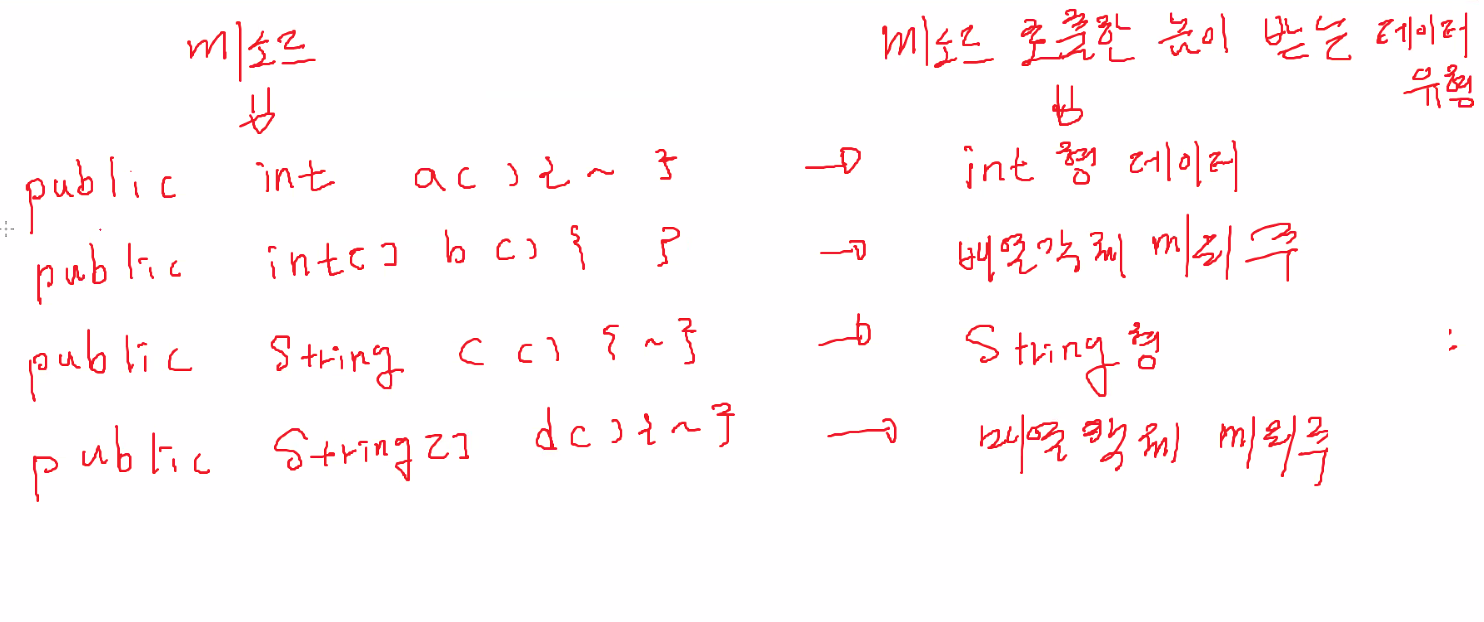 메소드 메소드 호출한 놈이 받는 데이터
유형
public int a(){~} → int형 데이터
public int[] b(){ } → 배열객체 메모리 주
public String c(){~} → String형 :
public String[] d(){~} → 배열객체 메모리주